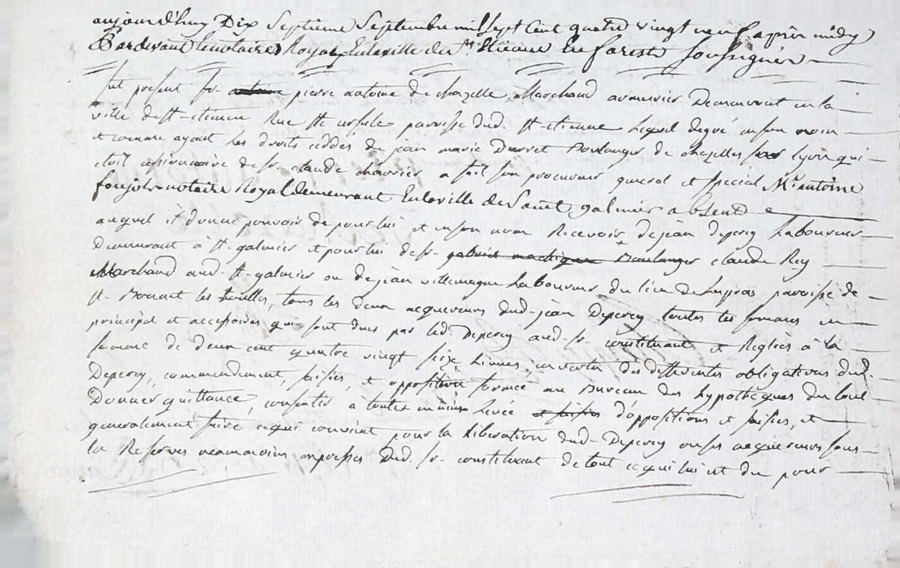 aujourd'huy Dix Septieme Septembre mil sept cent quatre vingt neuf apres midy
Pardevant les notaires Royaux en la ville de St Etienne en forest soussignés
fut present Sr antoine pierre antoine de chazelle Marchand armurier Demeurant en la
ville de St etienne Rue Ste ursule paroisse dud. St etienne Lequel de gré en son nom
et comme ayant les droits cédés de jean marie Boulanger de chazelles sur lyon qui
etoit cessionnaire de sr. claude chavrier a fait son procureur general et special Me antoine
notaire Royal demeurant en la ville de Saint galmier absend
auquel il donne pouvoir de pour lui et en son nom Recevoir de jean Depercy Laboureur
demeurant à St. galmier et pour lui de sr. gabriel Boulanger claude Rey
Marchand aud. St. galmier ou de jean villemagne Laboureur du lieu de paroisse de
St. Bonnet les tous les deux acquereurs dud. jean Depercy toutes les sommes en
principal et accessoires qui sont dues par led. Depercy aud. sr. constituant et Reglées à la
somme de deux cent quatre vingt seize Livres, en vertu des differentes obligations dud.
Depercy, commandement, saisies, et opposition formée au Bureau des hypotheques du
Donner quittance, consentir à toutes main Levée et saisies d'oppositions et saisies, et
generalement faire ce qui convient pour la Liberation dud. Depercy ou ses acquereurs sous
la Reserve neanmoins expresses dud. sr. constituant de tout ce qui lui est du pour